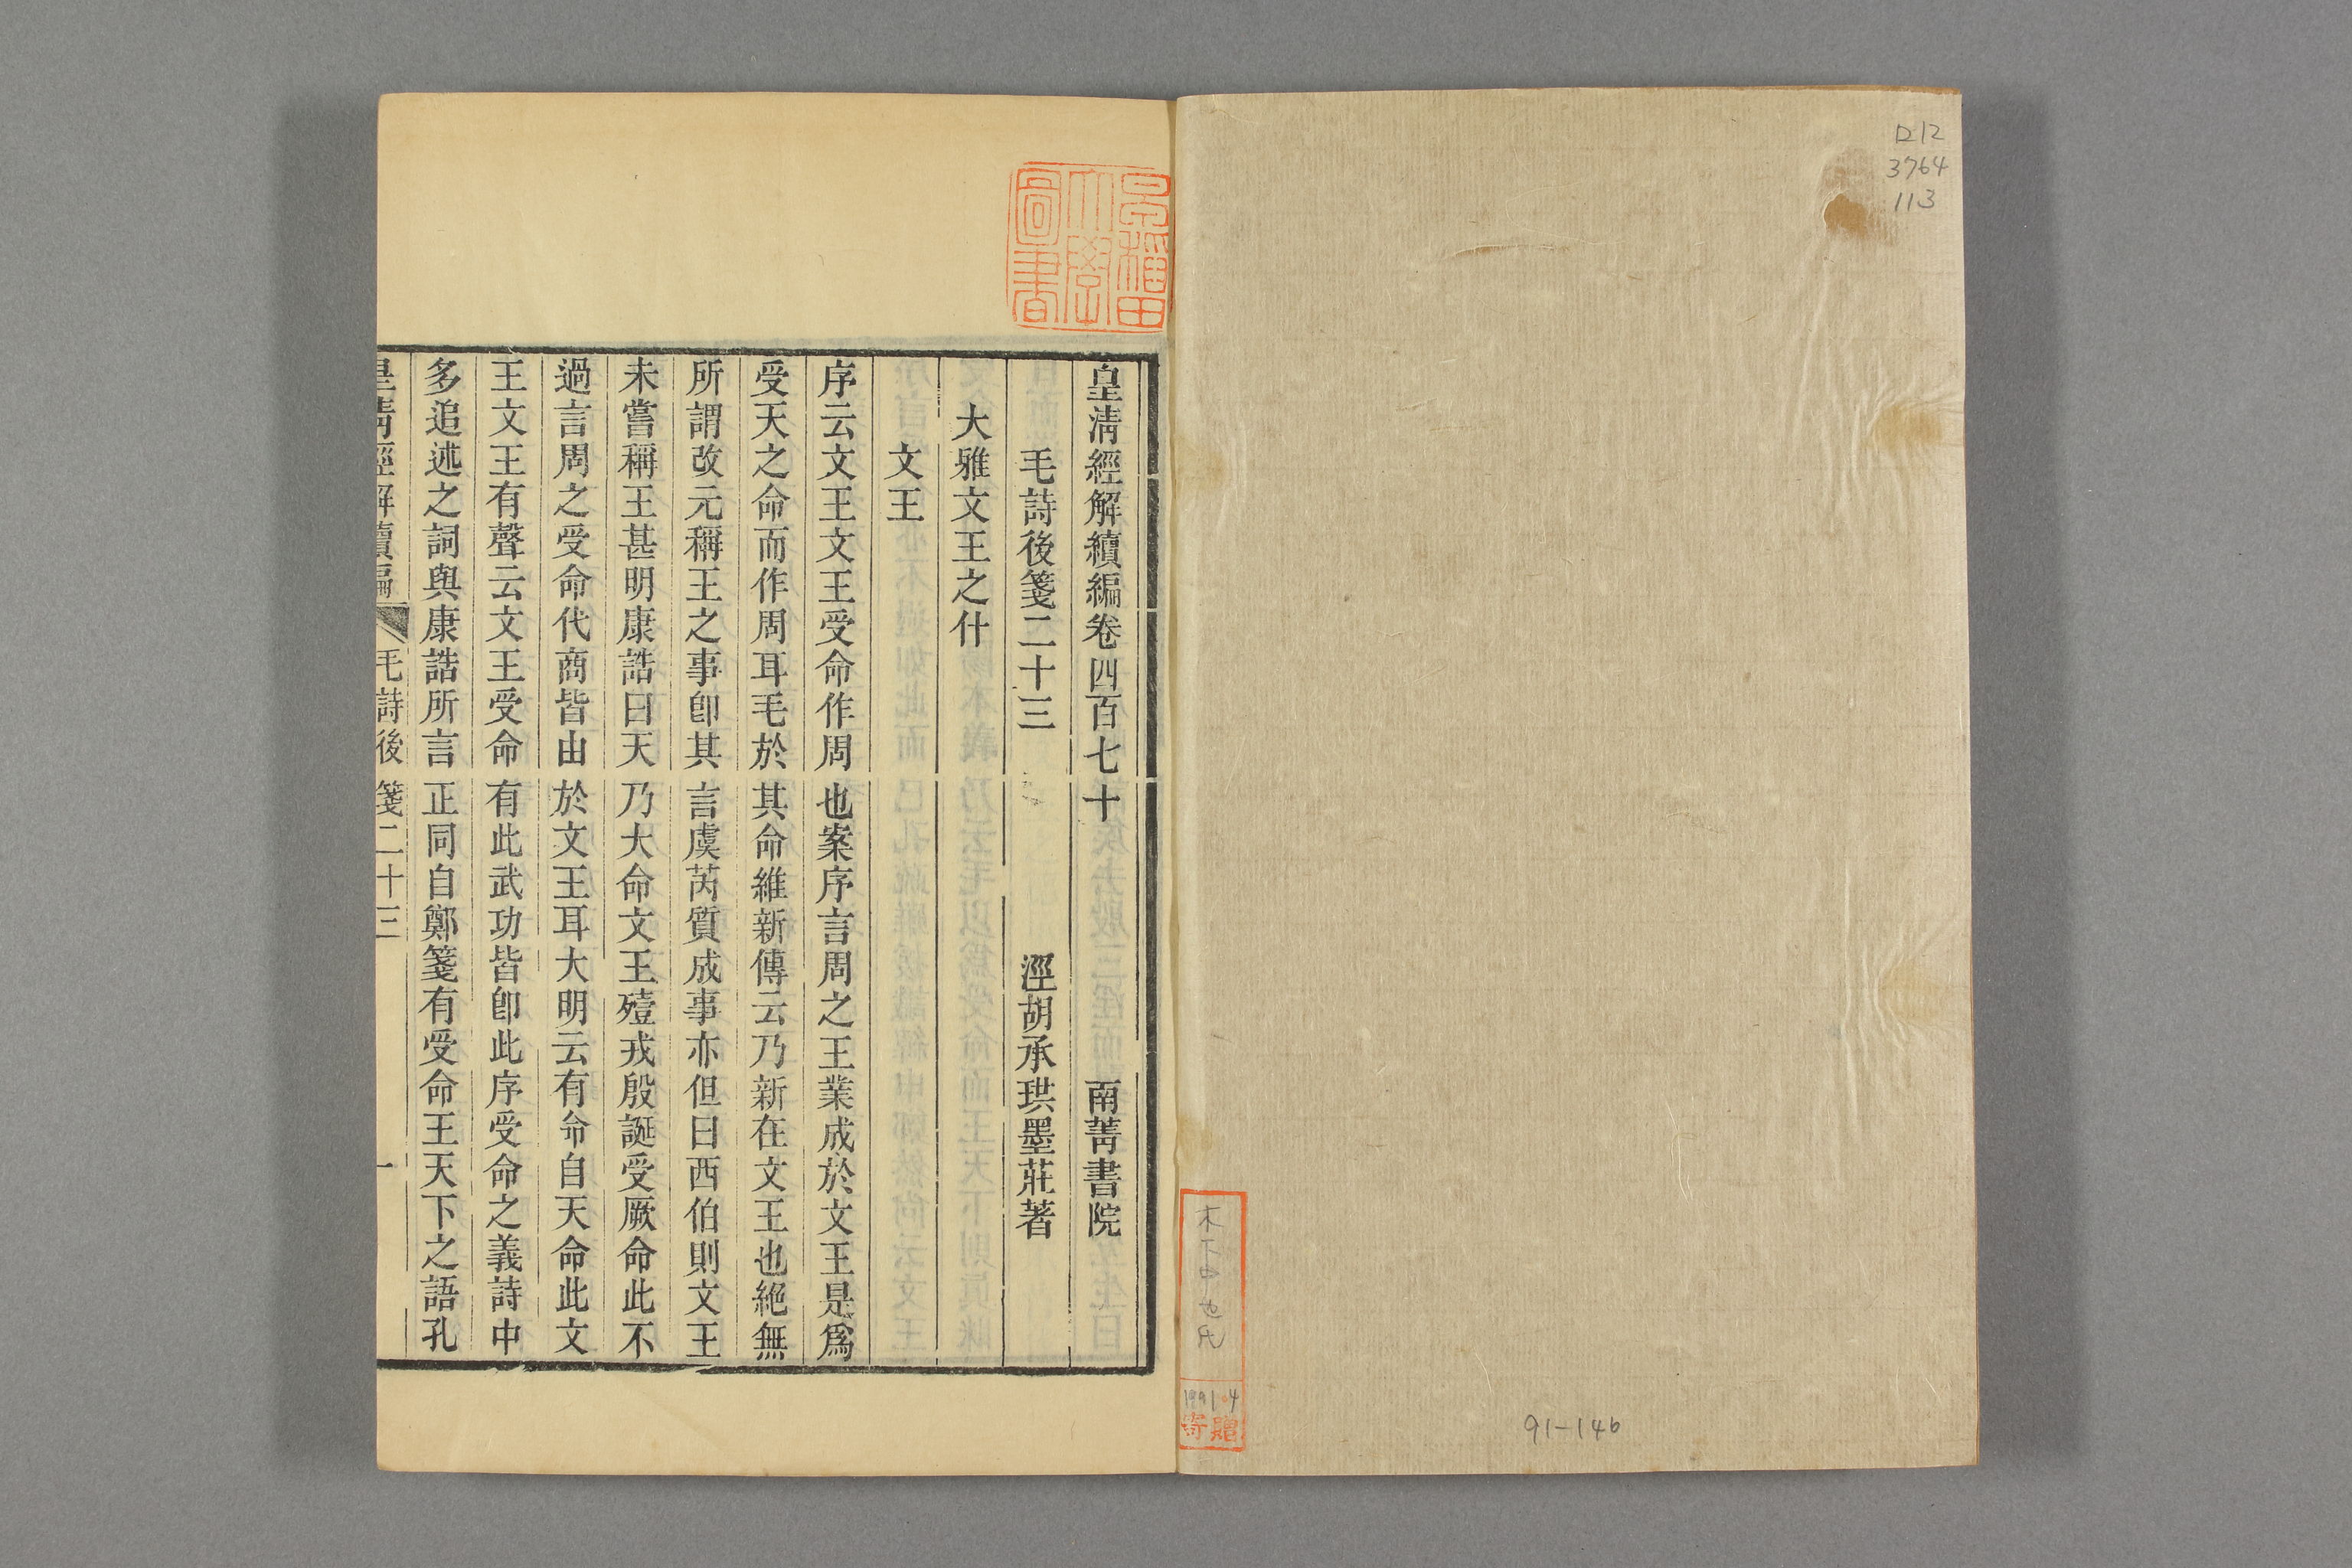 ロ12
3764
113
91-146
木下
氏
1991.04
寄贈
早稲田
大學
圖書
皇清經解續編卷四百七十　南菁書院
毛詩後箋二十三　涇胡承珙墨莊著
大雅文王之什
文王
序云文王文王受命作周也案序言周之王業成於文王是爲
受天之命而作周耳毛於其命維新傳云乃新在文王也絕無
所謂改元稱王之事卽其言虞芮質成事亦但曰西伯則文王
未嘗稱王甚明康誥曰天乃大命文王殪戎殷誕受厥命此不
過言周之受命代商皆由於文王耳大明云有命自天命此文
王文王有聲云文王受命有此武功皆卽此序受命之義詩中
多追述之詞與康誥所言正同自鄭箋有受命王天下之語孔
皇清經解續編　毛詩後箋二十三　一